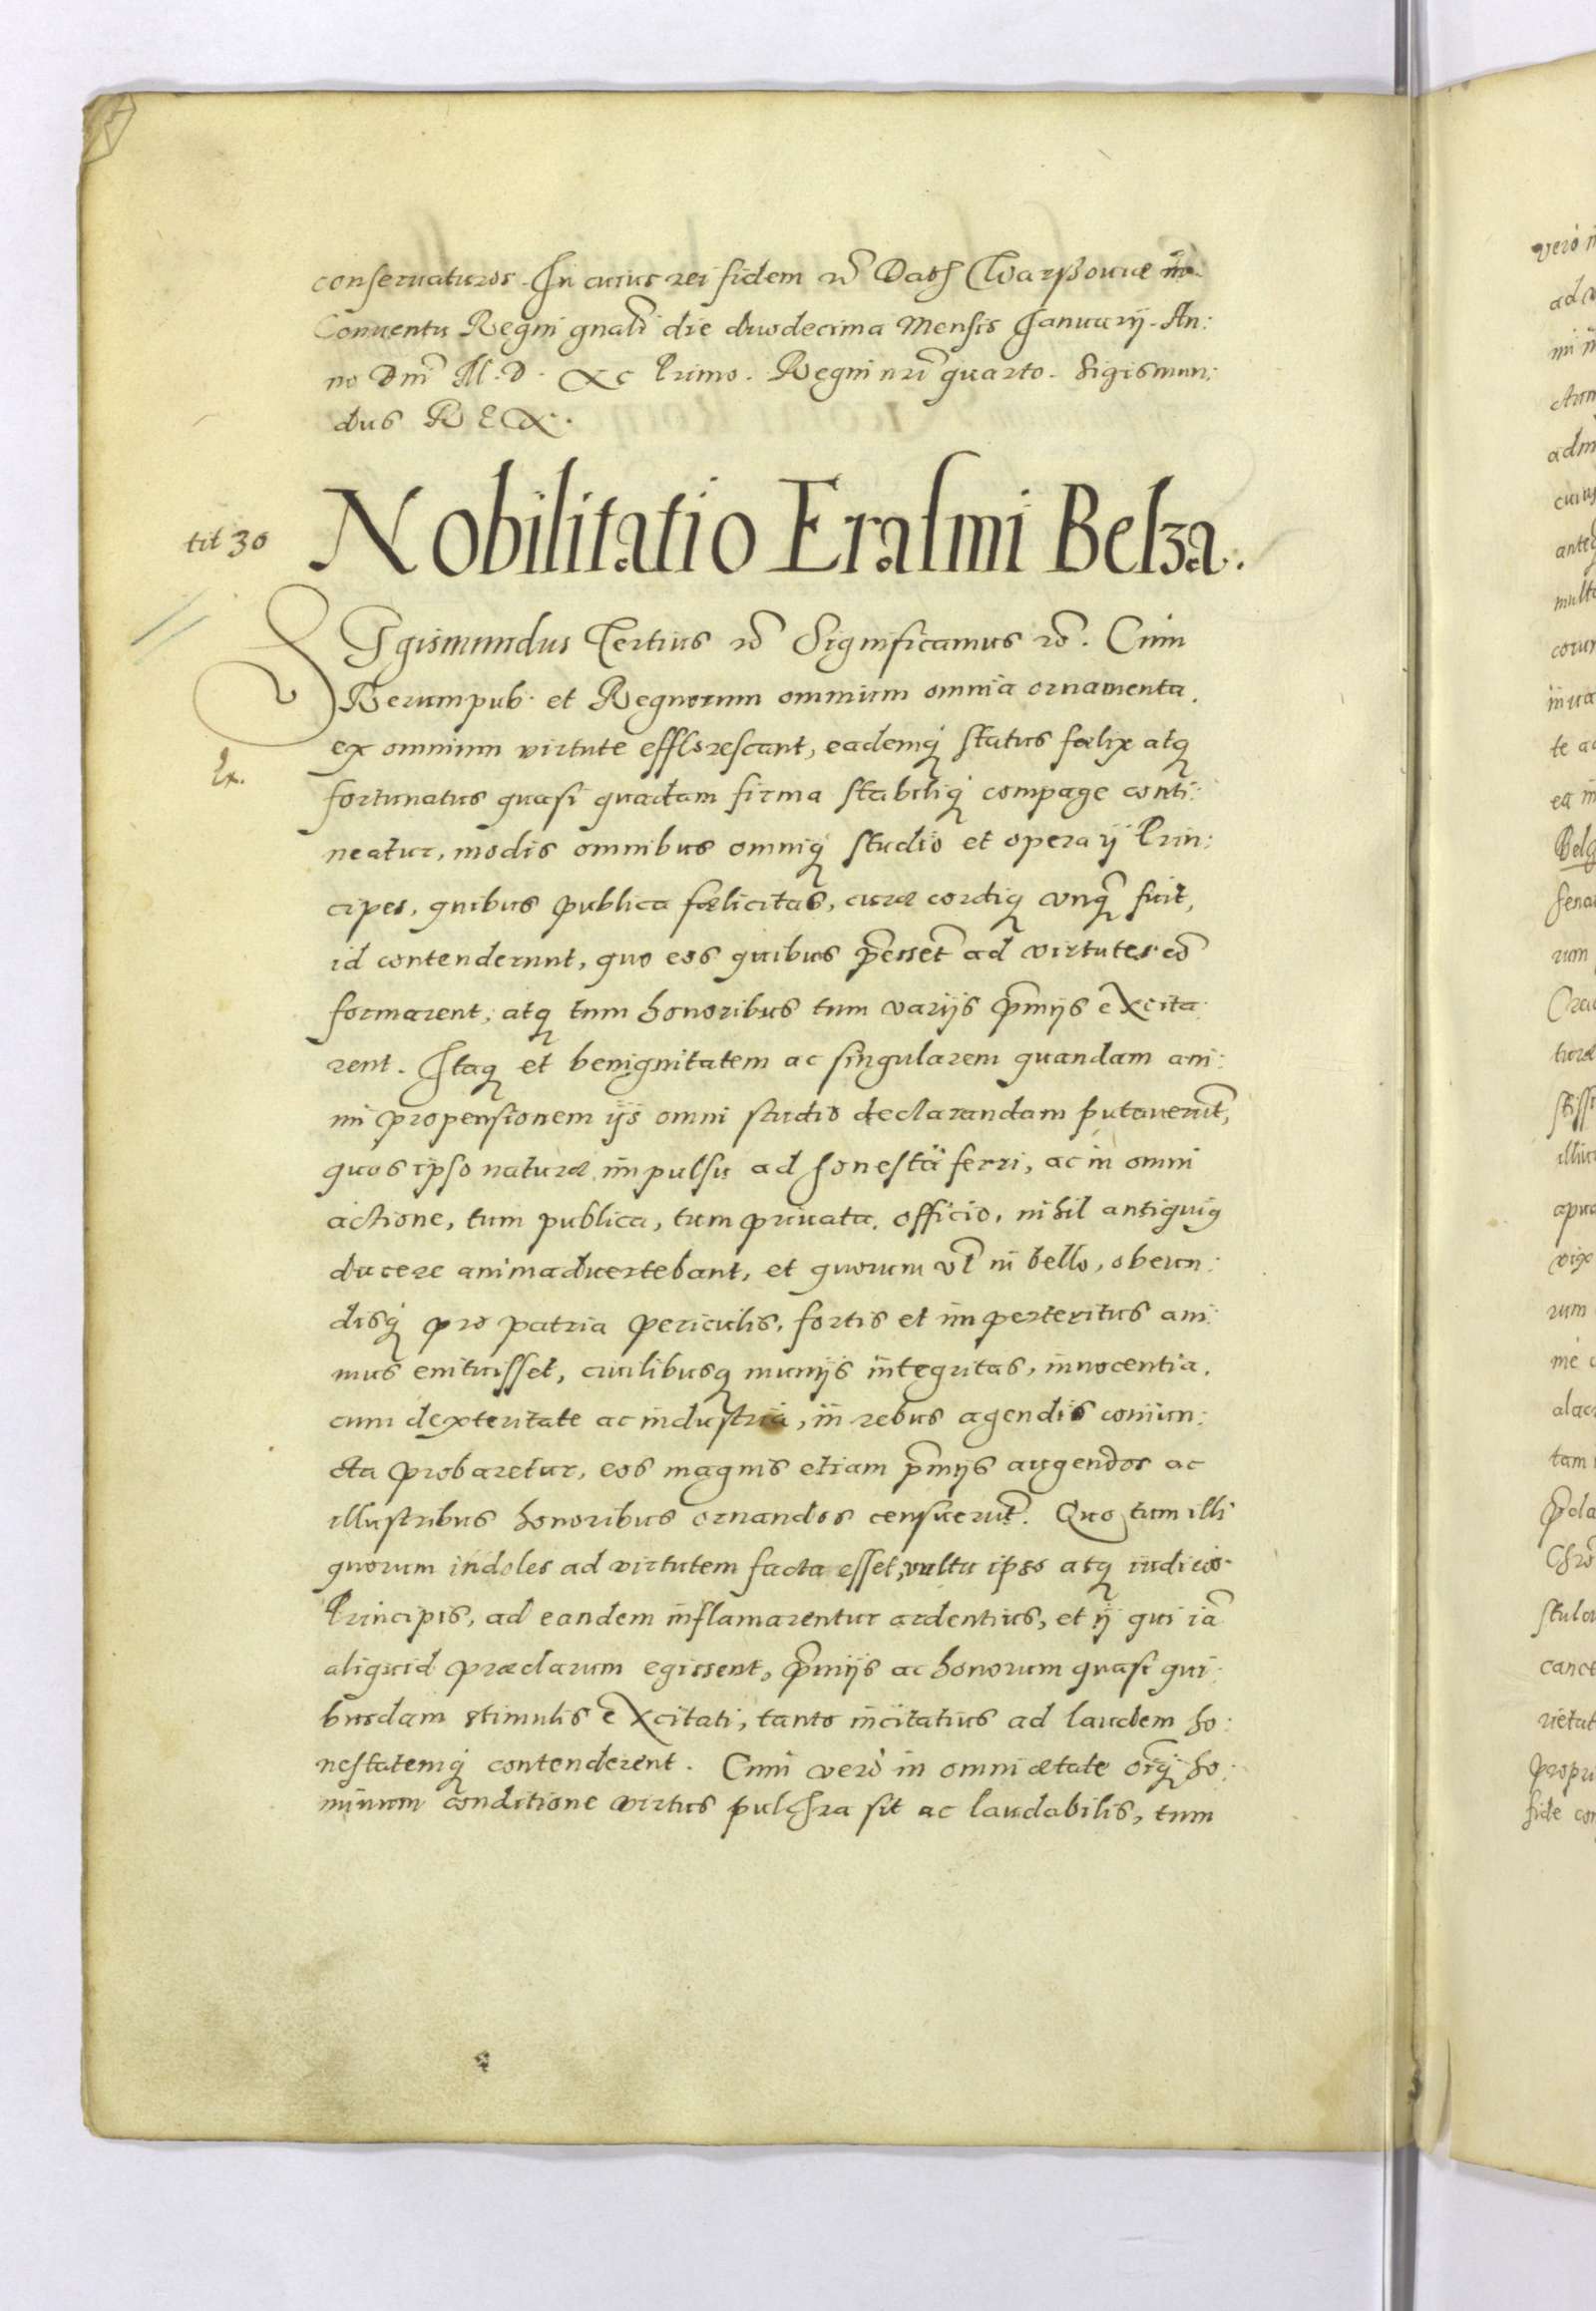 conseruaturos. In cuius rei fidem rc̃ Dat[ꝫ] Warßouiæ in
Conuentu Regni gnali die duodecima Mensis Januarij. An:
no Dni M.D. XC Primo. Regni nri quarto. Sigismun:
dus REX.
tit 30
Nobilitatio Erasmi Belza.
SIgismundus Tertius rc̃ Significamus rc̃. Cum
Rerumpub. et Regnorum omnium omnia ornamenta.
ex omnium virtute efflorescant, eademq̃ status fœlix atq̃
Ex.
fortunatus quasi quadam firma stabiliq̃ compage conti:
neatur, modis omnibus omniq̃ studio et opera ij Prin:
cipes, quibus publica fœlicitas, curæ cordiq̃ vnq̃ fuit,
id contenderunt, quo eos quibus p̃essẽt ad virtutes eõ
formarent, atq̃ tum honoribus tum varijs p̃mijs excita:
rent. Itaq̃ et benignitatem ac singularem quandam ani:
mi propensionem ijs omni studio declarandam putauerũt,
quos ipso naturæ impulsu ad honestã ferri, ac in omni
actione, tum publica, tum priuata, officio, nihil antiquiꝰ
ducere animaduertebant, et quorum vl̃ in bello, obeun:
disq̃ pro patria periculis, fortis et imperteritus ani:
mus enituisset, ciuilibusq̃ munijs integritas, innocentia,
cum dexteritate ac industria, in rebus agendis coniun:
cta probaretur, eos magnis etiam p̃mijs augendos ac
illustribus honoribus ornandos censuerũt. Quo tum illi
quorum indoles ad virtutem facta esset, vultu ipso atq̃ iudicio
Principis, ad eandem inflamarentur ardentius, et ij qui iã
aliquid præclarum egissent, p̃mijs ac honorum quasi qui:
busdam stimulis excitati, tanto incitatius ad laudem ho:
nestatemq̃ contenderent. Cum verò in omni ætate oĩq̃ ho:
minum conditione virtus pulchra sit ac laudabilis, tum